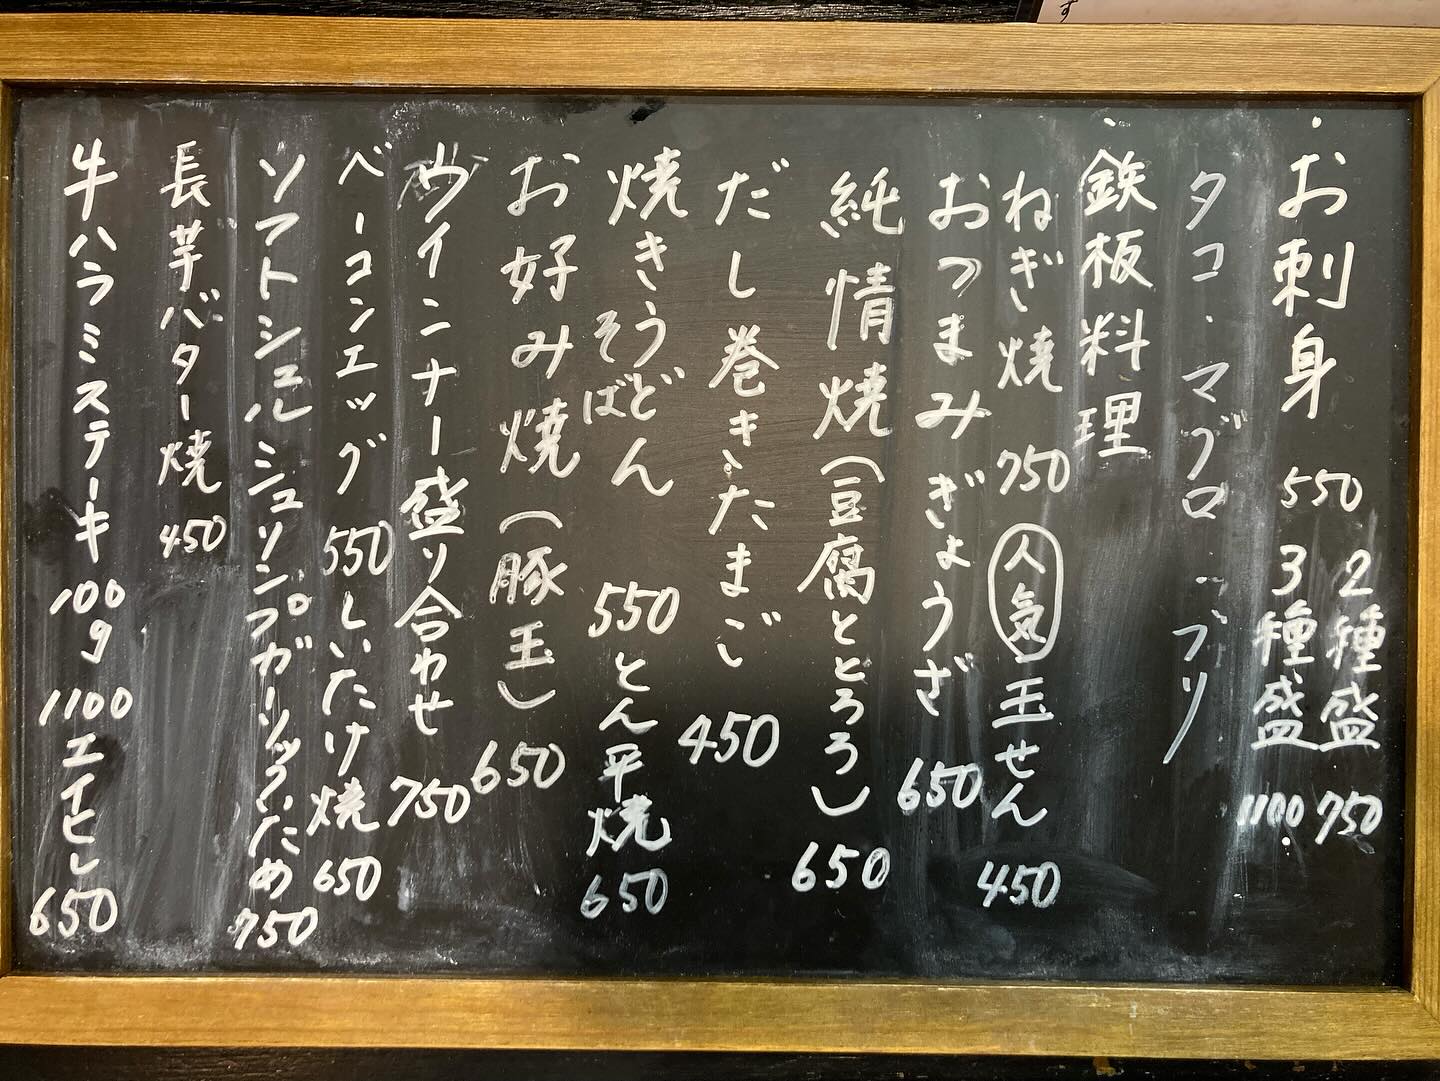 お刺身 550 2種盛 750
3種盛 1100
タコ・マグロ・ブリ
鉄板料理
ねぎ焼 750 人気 玉せん 450
おつまみぎょうざ 650
純情焼(豆腐ととろろ) 650
だし巻きたまご 450
焼きうどん 550 とん平焼 650
そば
お好み焼(豚玉) 650
ウインナー盛り合わせ 750
ベーコンエッグ 550 しいたけ焼 650
ソフトシェルシュリンプガーリックいため 750
長芋バター焼 450
牛ハラミステーキ 100g 1100 エイヒレ 650
す